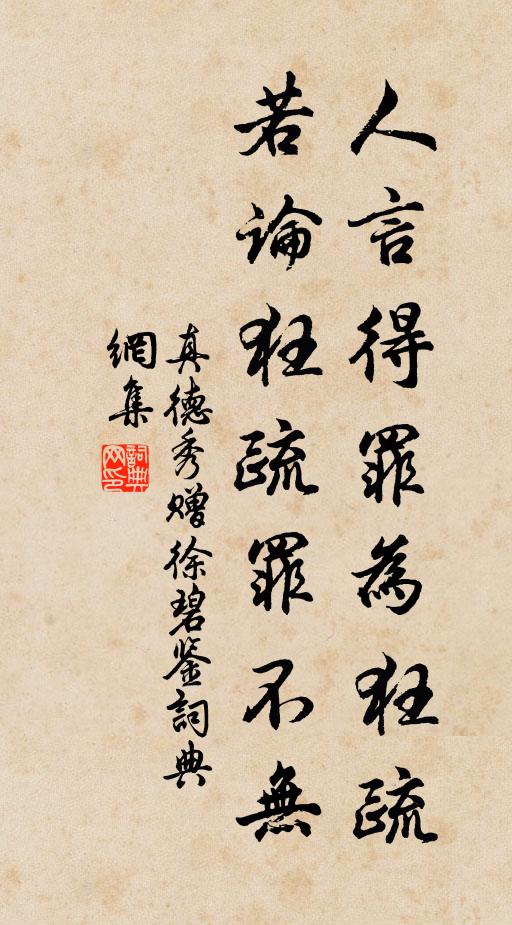 人言得罪為狂疏
若論狂疏罪不無
真德秀贈徐碧鉴詞典
網集
詞典网印